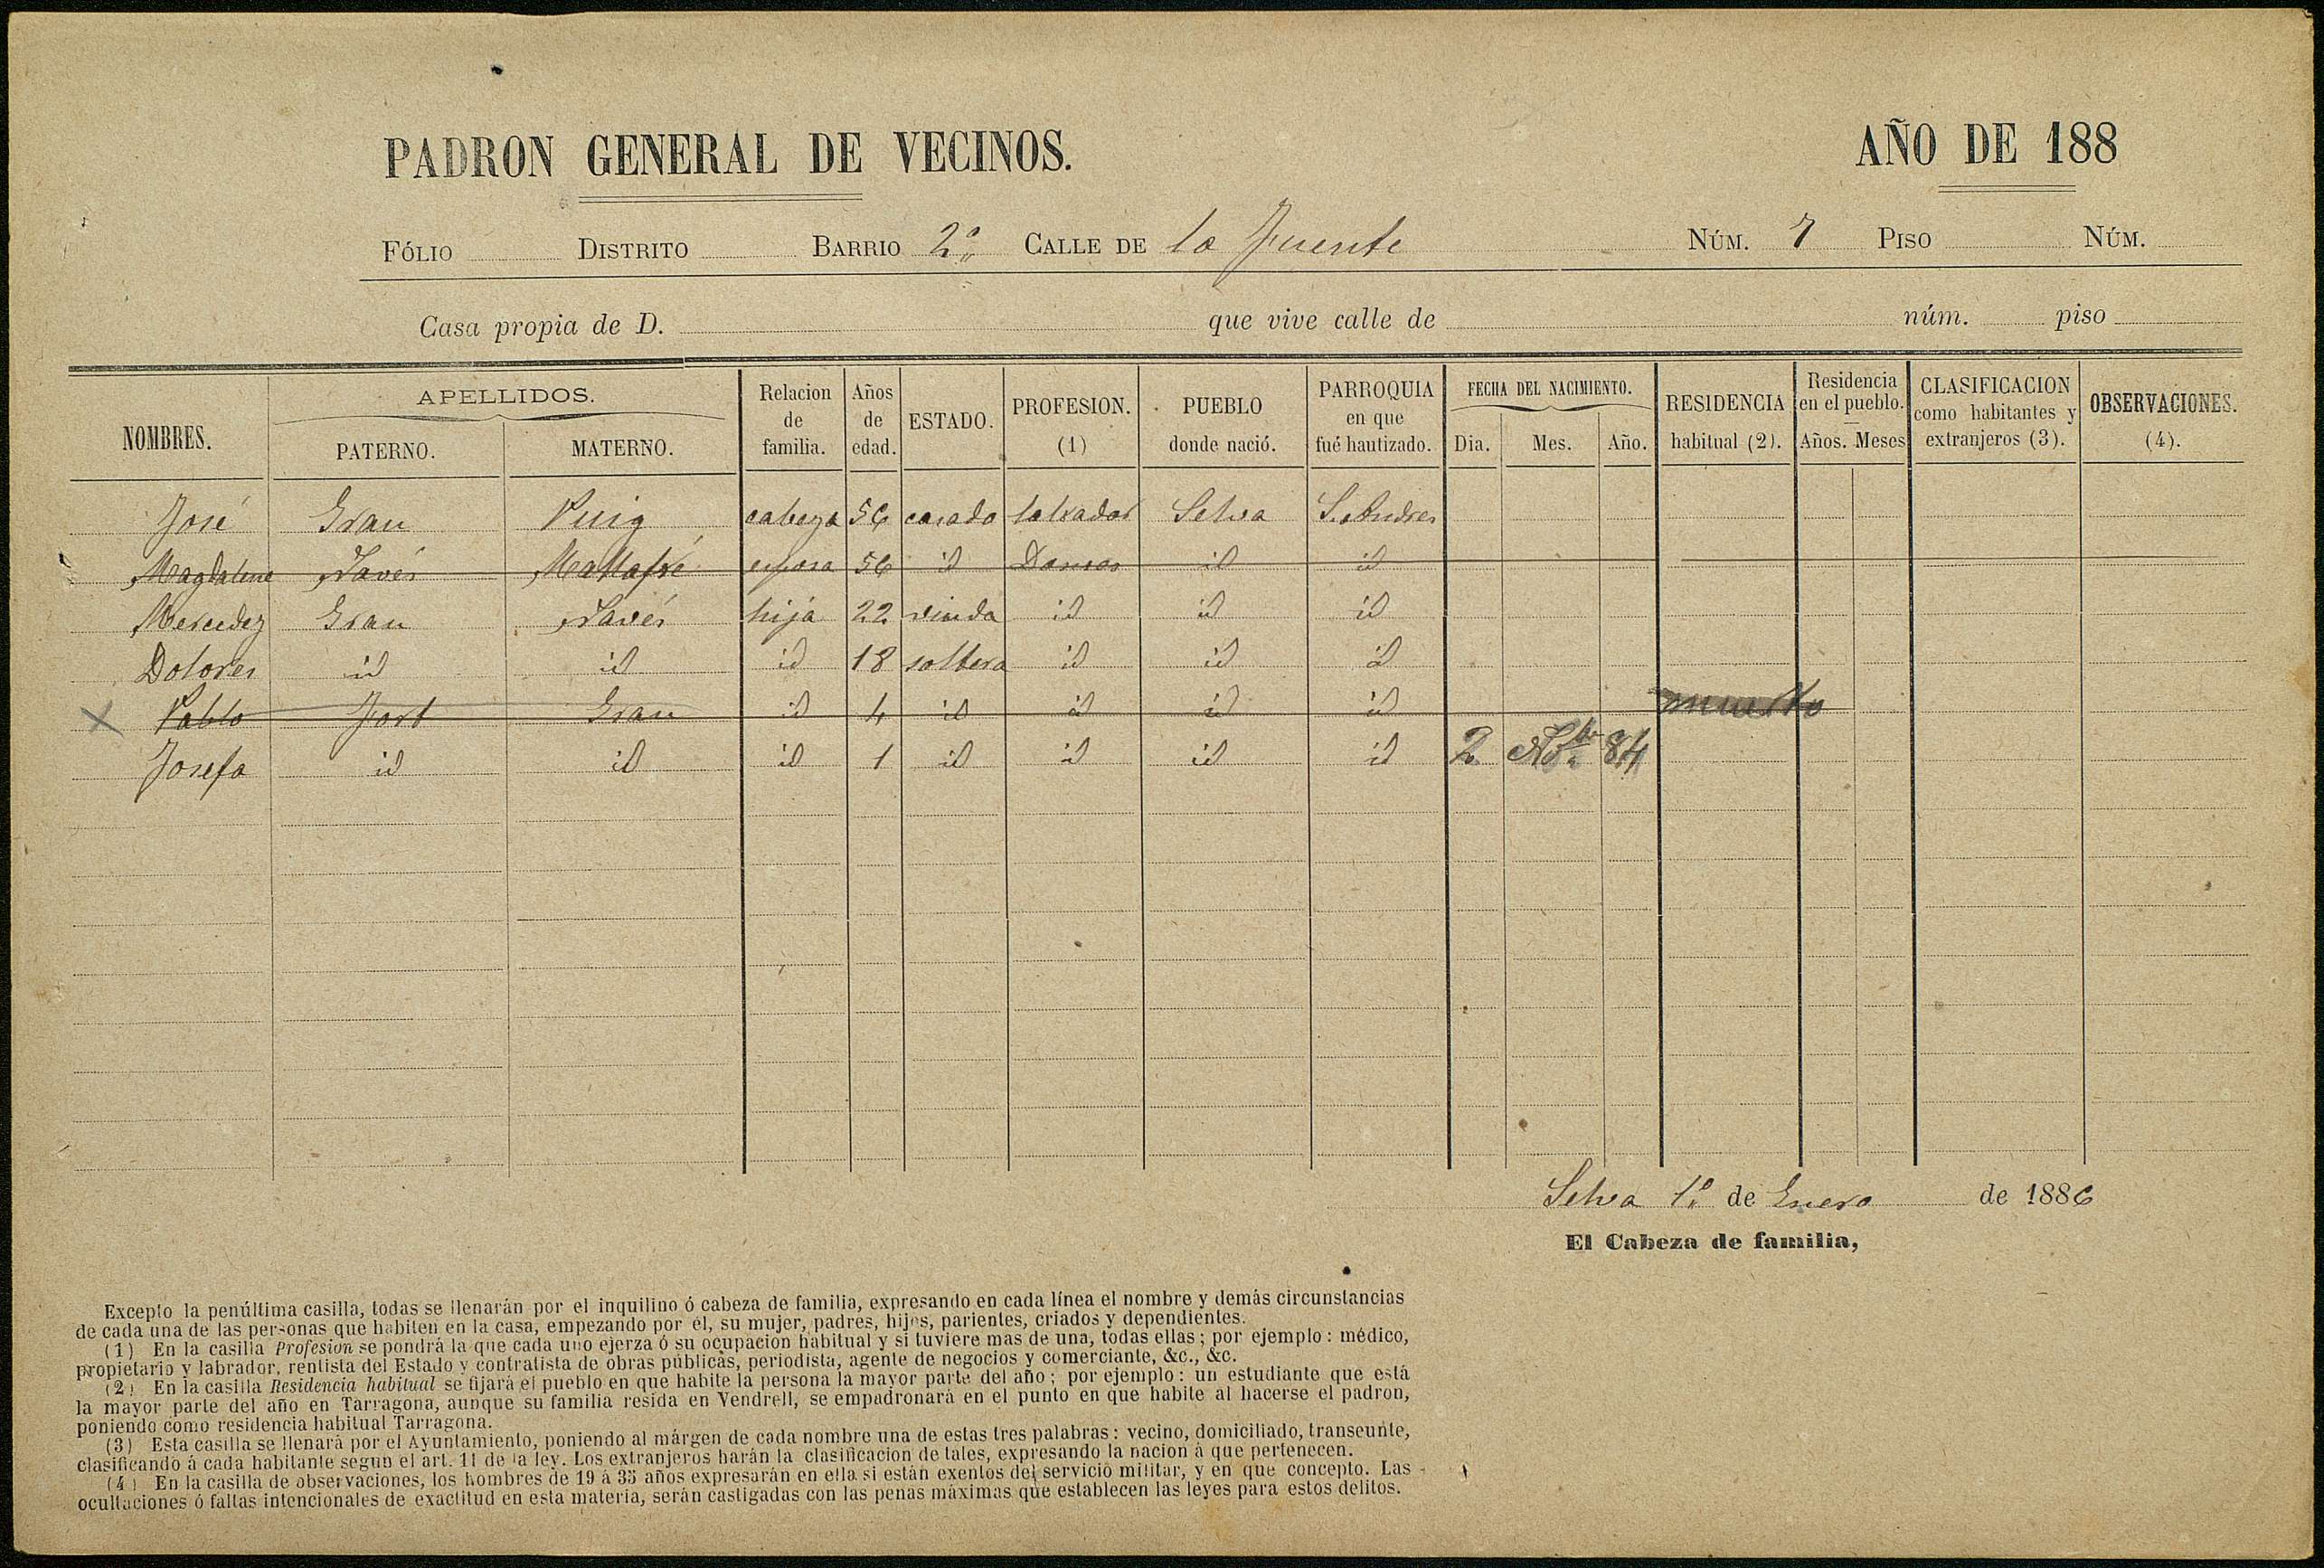 PADRON GENERAL DE VECINOS. AÑO DE 188
FÓLIO DISTRITO BARRIO 2º CALLE DE la Fuente NÚM. 7 PISO NÚM.
Casa propia de D. que vive calle de núm. piso
NOMBRES. APELLIDOS. PATERNO. MATERNO. Relacion de familia. Años de edad. ESTADO. PROFESION. (1) PUEBLO donde nació. PARROQUIA en que fué bautizado. FECHA DEL NACIMIENTO. Dia. Mes. Año. RESIDENCIA habitual (2). Residencia en el pueblo. Años. Meses CLASIFICACION como habitantes y extranjeros (3). OBSERVACIONES. (4).
José Grau Puig cabeza 56 casado labrador Selva S. Andres
Magdalena Savés Mallafré esposa 56 id id id
Mercedez Grau Savés hija 22 viuda id id id
Dolores id id id 18 soltera id id id
Pablo Fort Grau id 4 id id id id muerto
Josefa id id id 1 id id id id 2 Nbre 84
Selva 1º de Enero de 1886
El Cabeza de familia,
Excepto la penúltima casilla, todas se llenarán por el inquilino ó cabeza de familia, expresando en cada línea el nombre y demás circunstancias
de cada una de las personas que habiten en la casa, empezando por él, su mujer, padres, hijos, parientes, criados y dependientes.
(1) En la casilla Profesion se pondrá la que cada uno ejerza ó su ocupacion habitual y si tuviere mas de una, todas ellas; por ejemplo: médico,
propietario y labrador, rentista del Estado y contratista de obras públicas, periodista, agente de negocios y comerciante, &c., &c.
(2) En la casilla Residencia habitual se fijará el pueblo en que habite la persona la mayor parte del año; por ejemplo: un estudiante que está
la mayor parte del año en Tarragona, aunque su familia resida en Vendrell, se empadronará en el punto en que habite al hacerse el padron,
poniendo como residencia habitual Tarragona.
(3) Esta casilla se llenará por el Ayuntamiento, poniendo al márgen de cada nombre una de estas tres palabras: vecino, domiciliado, transeunte,
clasificando á cada habitante segun el art. 11 de la ley. Los extranjeros harán la clasificacion de tales, expresando la nacion á que pertenecen.
(4) En la casilla de observaciones, los hombres de 19 á 35 años expresarán en ella si están exentos del servicio militar, y en que concepto. Las
ocultaciones ó faltas intencionales de exactitud en esta materia, serán castigadas con las penas máximas que establecen las leyes para estos delitos.